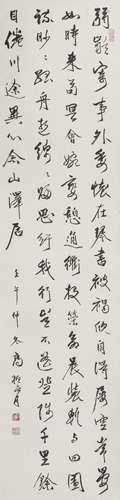 弱齡寄事外委懷在琴書被褐欣自得屢空常晏
如時來苟冥會婉孌憩通衢投策命晨裝暫与田園
疎眇眇孤舟逝綿綿歸思紆我行豈不遥登陟千里餘
目倦川途異心念山澤居
壬午仲冬